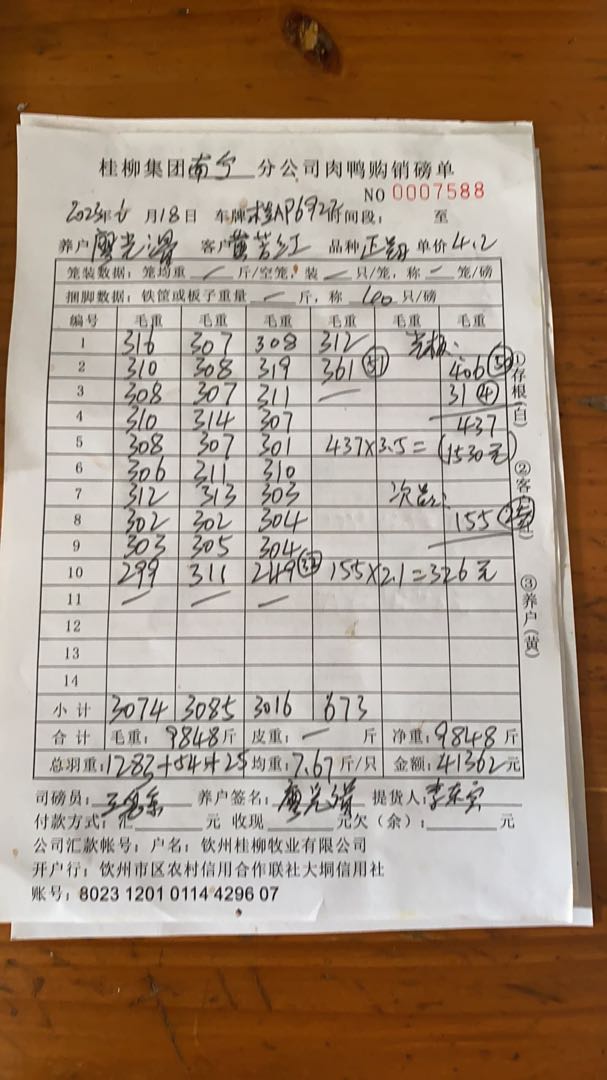 桂柳集团南宁分公司肉鸭购销磅单
NO 0007588
2023年6月18日 车牌桂AP692 时间段: 至
养户 客户 品种 正 单价4.2
笼装数据: 笼均重 — 斤/空笼, 装 — 只/笼, 称 — 笼/磅
捆脚数据: 铁筐或板子重量 — 斤, 称 只/磅
编号 毛重 毛重 毛重 毛重 毛重 毛重
1 316 307 308 312
2 310 308 319 361 406
3 308 307 311 — 31 ④
4 310 314 307 437
5 308 307 301 437×3.5= (1530元)
6 306 311 310
7 312 313 303 次品:
8 302 302 304 155
9 303 305 304
10 299 311 249 155×2.1=326元
11 — — —
12
13
14
小计 3074 3085 3016 673
合计 毛重: 9848斤 皮重: — 斤 净重: 9848斤
总羽重: 1283+54+25 均重: 7.67斤/只 金额: 41362元
司磅员: 养户签名: 提货人:
付款方式: 汇 元 收现 元欠(余): 元
公司汇款帐号: 户名: 钦州桂柳牧业有限公司
开户行: 钦州市区农村信用合作联社大垌信用社
账号: 8023 1201 0114 4296 07
①存根(白)
②客
③养户(黄)